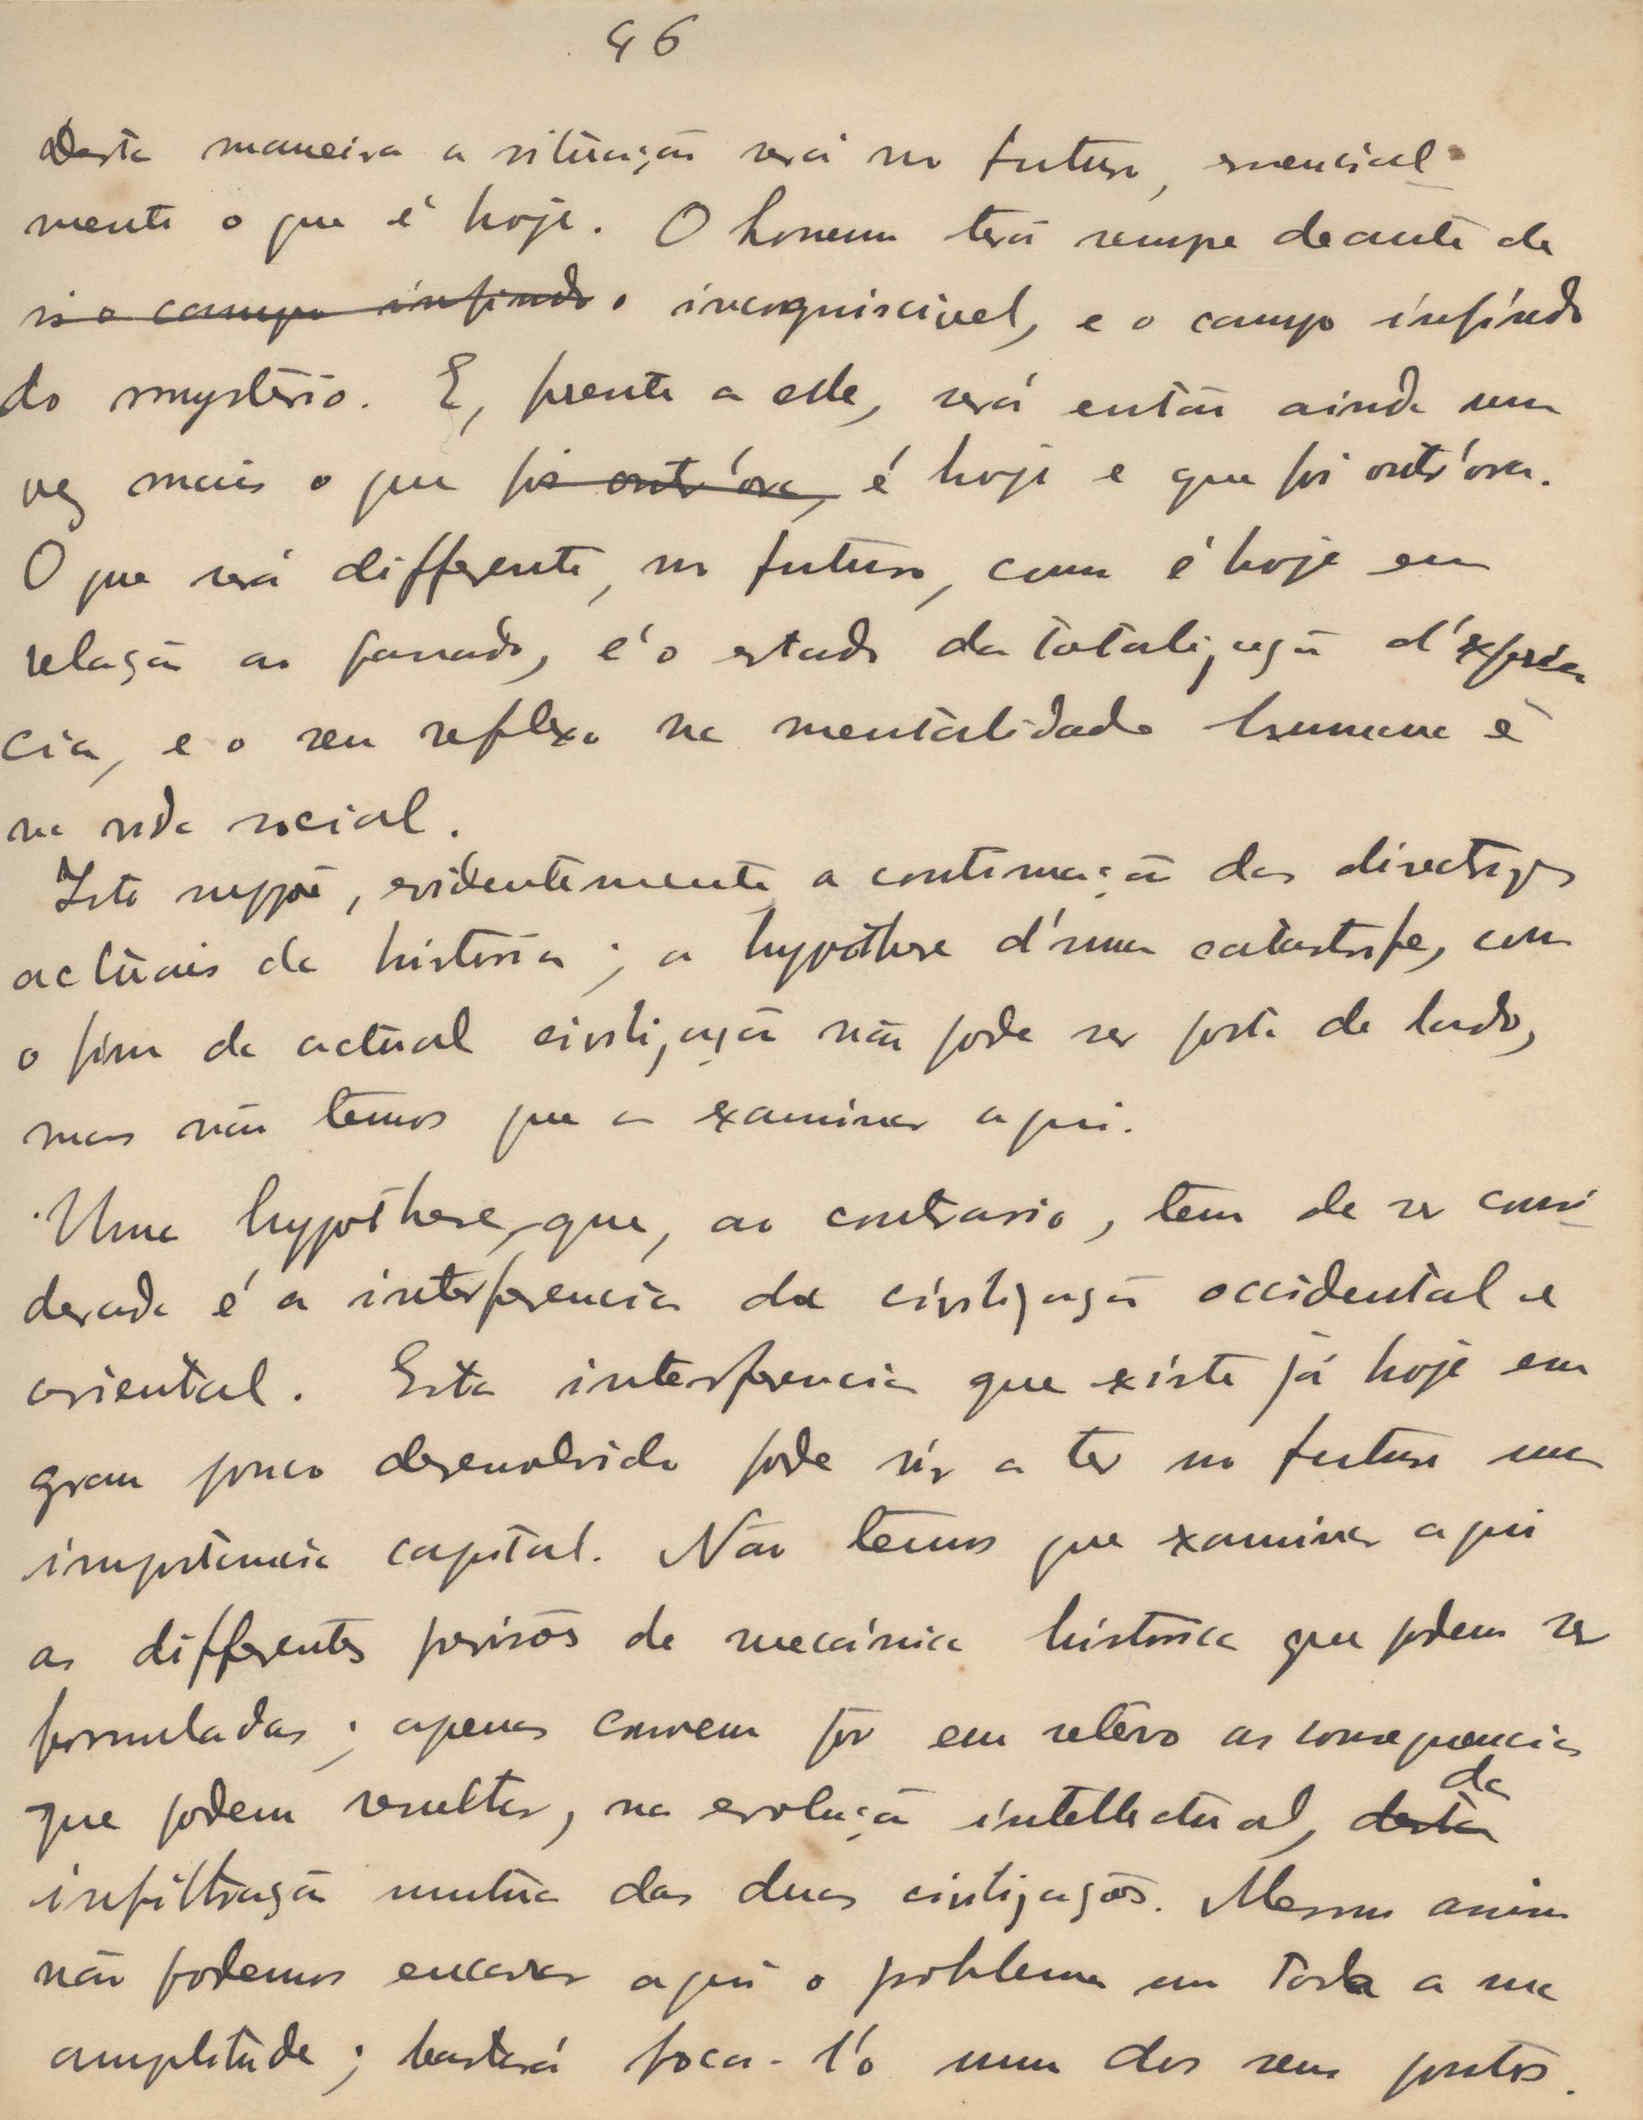 46
Desta maneira a situação será no futuro, essencial-
mente o que é hoje. O homem terá sempre deante de
si o campo infindo o incogniscivel, e o campo infindo
do mystério. E, frente a elle, será então ainda uma
vez mais o que foi outr'ora, é hoje e que foi outr'ora.
O que será differente, no futuro, como é hoje em
relação ao passado, é o estado da totalização d'experien
cia, e o seu reflexo na mentalidade humana e
na vida social.
Isto suppõe, evidentemente a continuação das directrizes
actuais da história; a hypothese d'uma catastrofe, com
o fim da actual civilização não pode ser posta de lado,
mas não temos que a examinar aqui.
Uma hypothese, que, ao contrario, tem de ser consi
derada é a interferencia da civilização occidental e
oriental. Esta interferencia que existe já hoje em
grau pouco desenvolvido pode vir a ter no futuro uma
importancia capital. Não temos que examinar aqui
as differentes previsões de mecánica histórica que podem ser
formuladas; apenas convem pôr em relevo as consequencias
que podem resultar, na evolução intellectual, desta da
infiltração mutua das duas civilizações. Mesmo assim
não podemos encarar aqui o problema em toda a sua
amplitude; bastará foca-l'o num dos seus pontos.